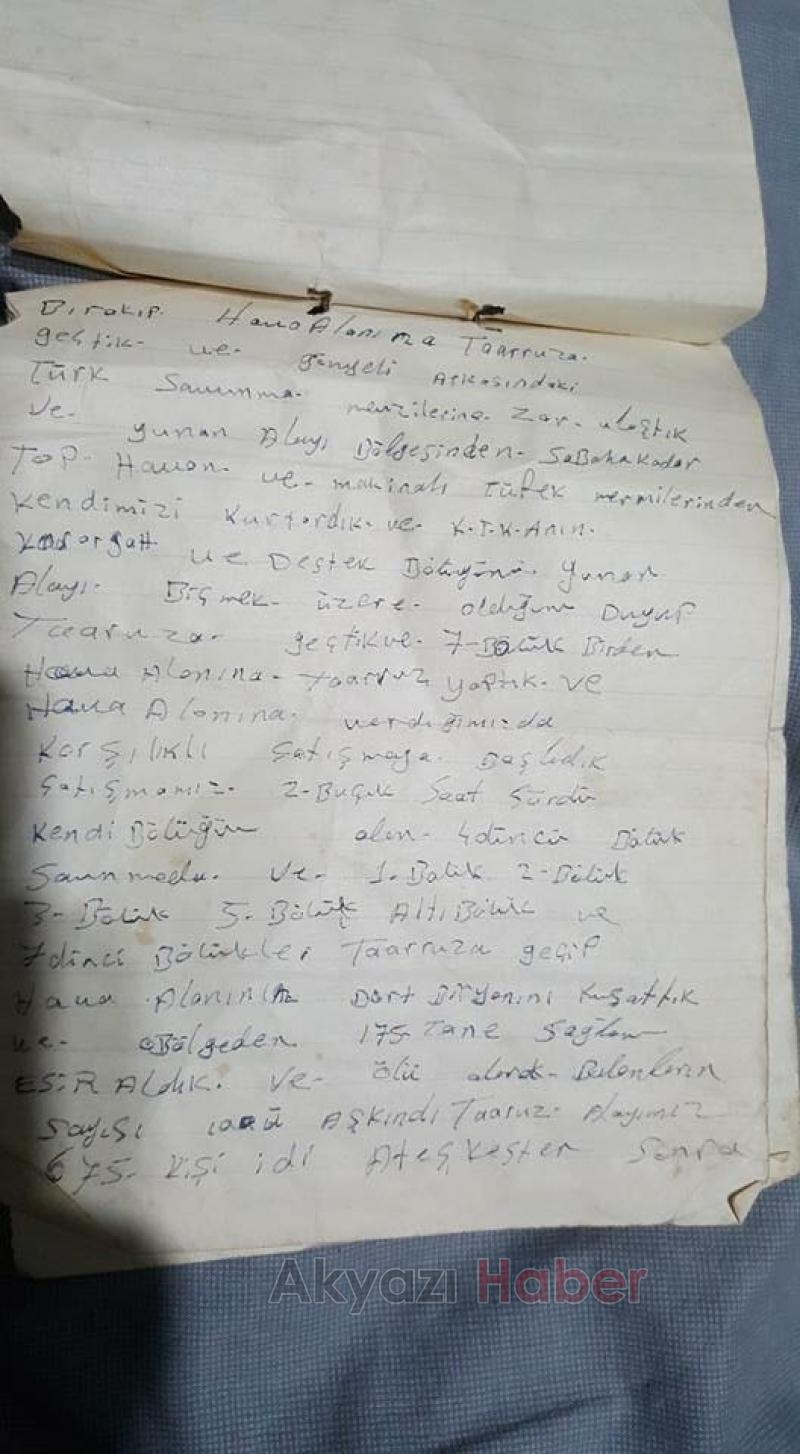 Bırakıp. Hava Alanına Taarruza.
geçtik- ve- gönyeli Arkasındaki
Türk Savunma. mevzilerine. Zor. ulaştık
ve- yunan Alayı Bölgesinden- SaBaha kadar
Top- Havan- ve- makinalı tüfek mermilerinden
kendimizi Kurtardık- ve- K.T.K.Anın.
ve Destek Bölüğünü yunan
Alayı. Biçmek- üzere- olduğunu Duyup
Taaruza- geçtikve- 7-Bölük Birden
Hava Alanına- Taarruz yaptık- ve
Hava Alanına. verdiğimizda
Karşılıklı Çatışmaya. Başladık
Çatışmamız- 2-Buçuk Saat Sürdü
Kendi Bölüğüm olan- 4düncü Bölük
Savnmada. ve- 1.Bölük 2-Bölük
3-Bölük 5.Bölük Altı Bölük ve
7dinci Bölükler Taarruza geçip
Hava Alanının Dört Bir yanını Kuşattık
ve- Bölgeden 175 Tane Sağlam
ESİR Aldık. ve- ölü alarak- Bulunların
Sayısı Aşkındı Taaruz. Alayımız
675. Kişi idi Ateşkesten Sonra
Akyazı Haber